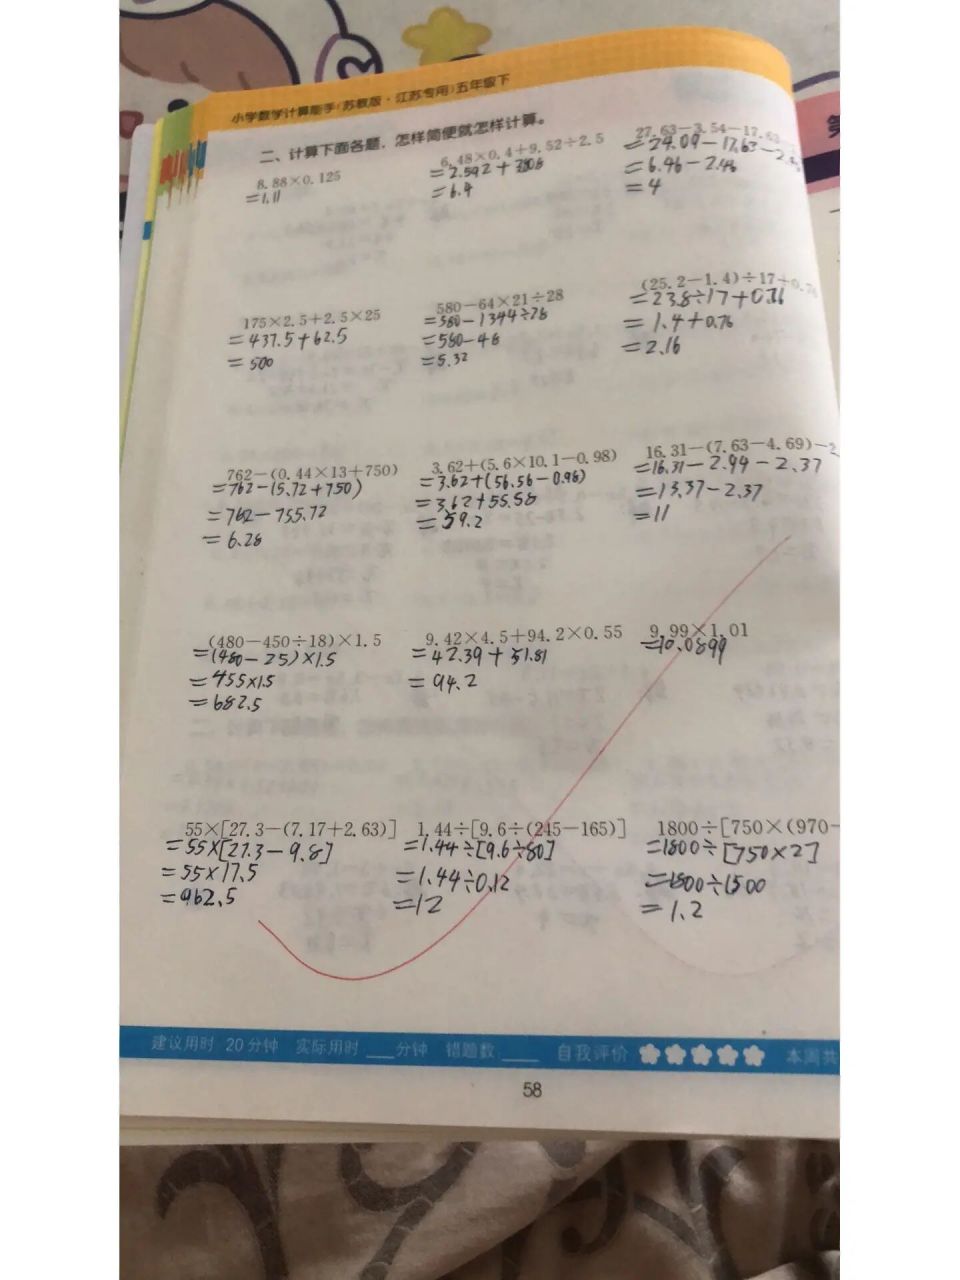 小学数学计算能手(苏教版·江苏专用)五年级下
二、计算下面各题，怎样简便就怎样计算。
8.88×0.125
=1.11
6.48×0.4+9.52÷2.5
=2.592+3.808
=6.4
27.63-3.54-17.63
=24.09-17.63-2.46
=6.46-2.46
=4
175×2.5+2.5×25
=437.5+62.5
=500
580-64×21÷28
=580-1344÷28
=580-48
=5.32
(25.2-1.4)÷17+0.76
=23.8÷17+0.76
=1.4+0.76
=2.16
762-(0.44×13+750)
=762-(5.72+750)
=762-755.72
=6.28
3.62+(5.6×10.1-0.98)
=3.62+(56.56-0.98)
=3.62+55.58
=59.2
16.31-(7.63-4.69)-2
=16.31-2.94-2.37
=13.37-2.37
=11
(480-450÷18)×1.5
=(480-25)×1.5
=455×1.5
=682.5
9.42×4.5+94.2×0.55
=42.39+51.81
=94.2
9.99×1.01
=10.0899
55×[27.3-(7.17+2.63)]
=55×[27.3-9.8]
=55×17.5
=962.5
1.44÷[9.6÷(245-165)]
=1.44÷[9.6÷80]
=1.44÷0.12
=12
1800÷[750×(970-
=1800÷[750×2]
=1800÷1500
=1.2
建议用时 20分钟 实际用时 ___分钟 错题数 ___ 自我评价 本周共
58
第